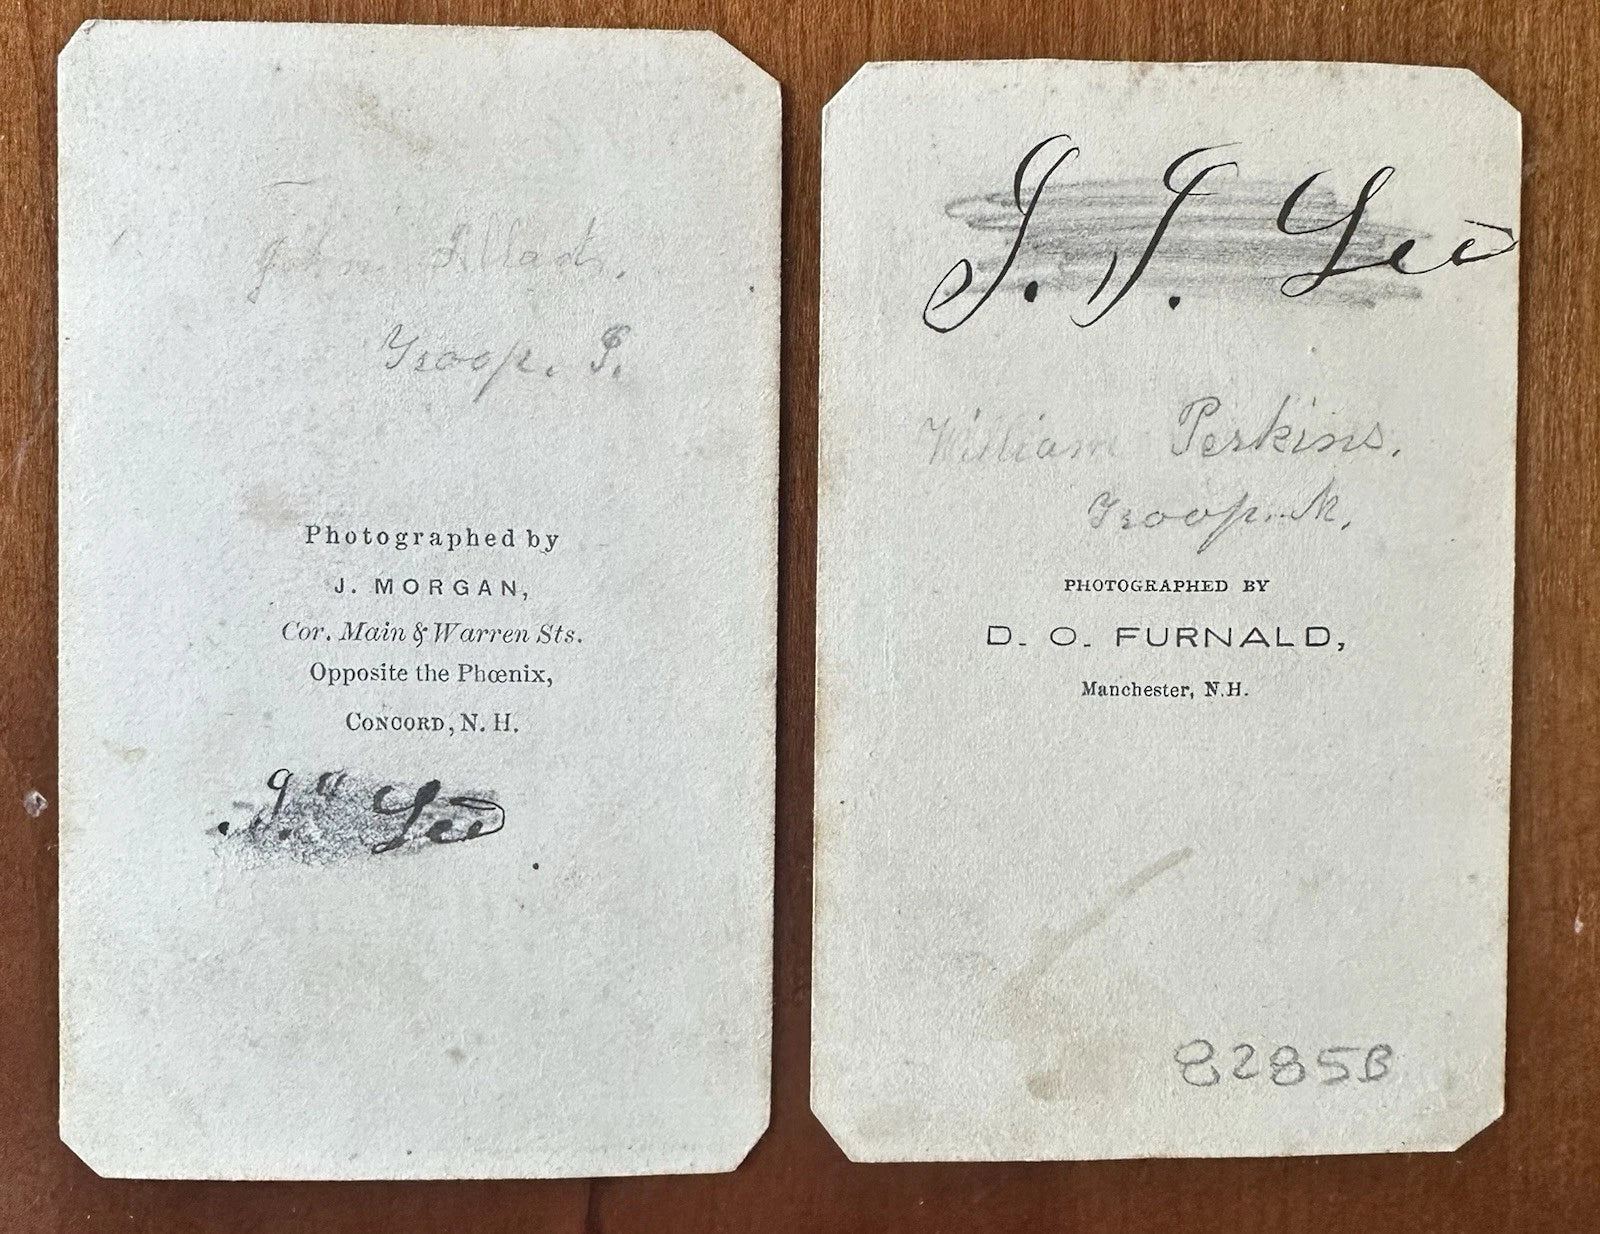 John
Troop. I.
Photographed by
J. MORGAN,
Cor. Main & Warren Sts.
Opposite the Phœnix,
CONCORD, N. H.
Lee
J. J. Lee
William Perkins.
Troop. M.
PHOTOGRAPHED BY
D. O. FURNALD,
Manchester, N.H.
8285B